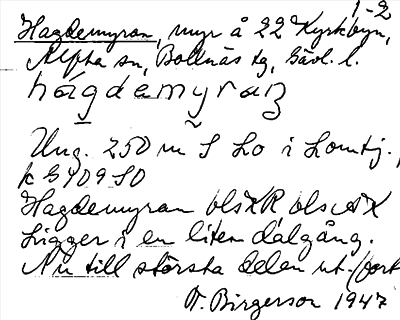 1-2
Hagdemyran, myr å 22 Kyrkbyn,
Alfta sn, Bollnäs tg, Gävl. l.
hágdemyraṉ
Ung. 250 m S Lo i Lomtj.,
k G 909 SO
Hagdemyran bls XR ols AX
Ligger i en liten dalgång.
Nu till största delen ut-
O. Birgerson 1947